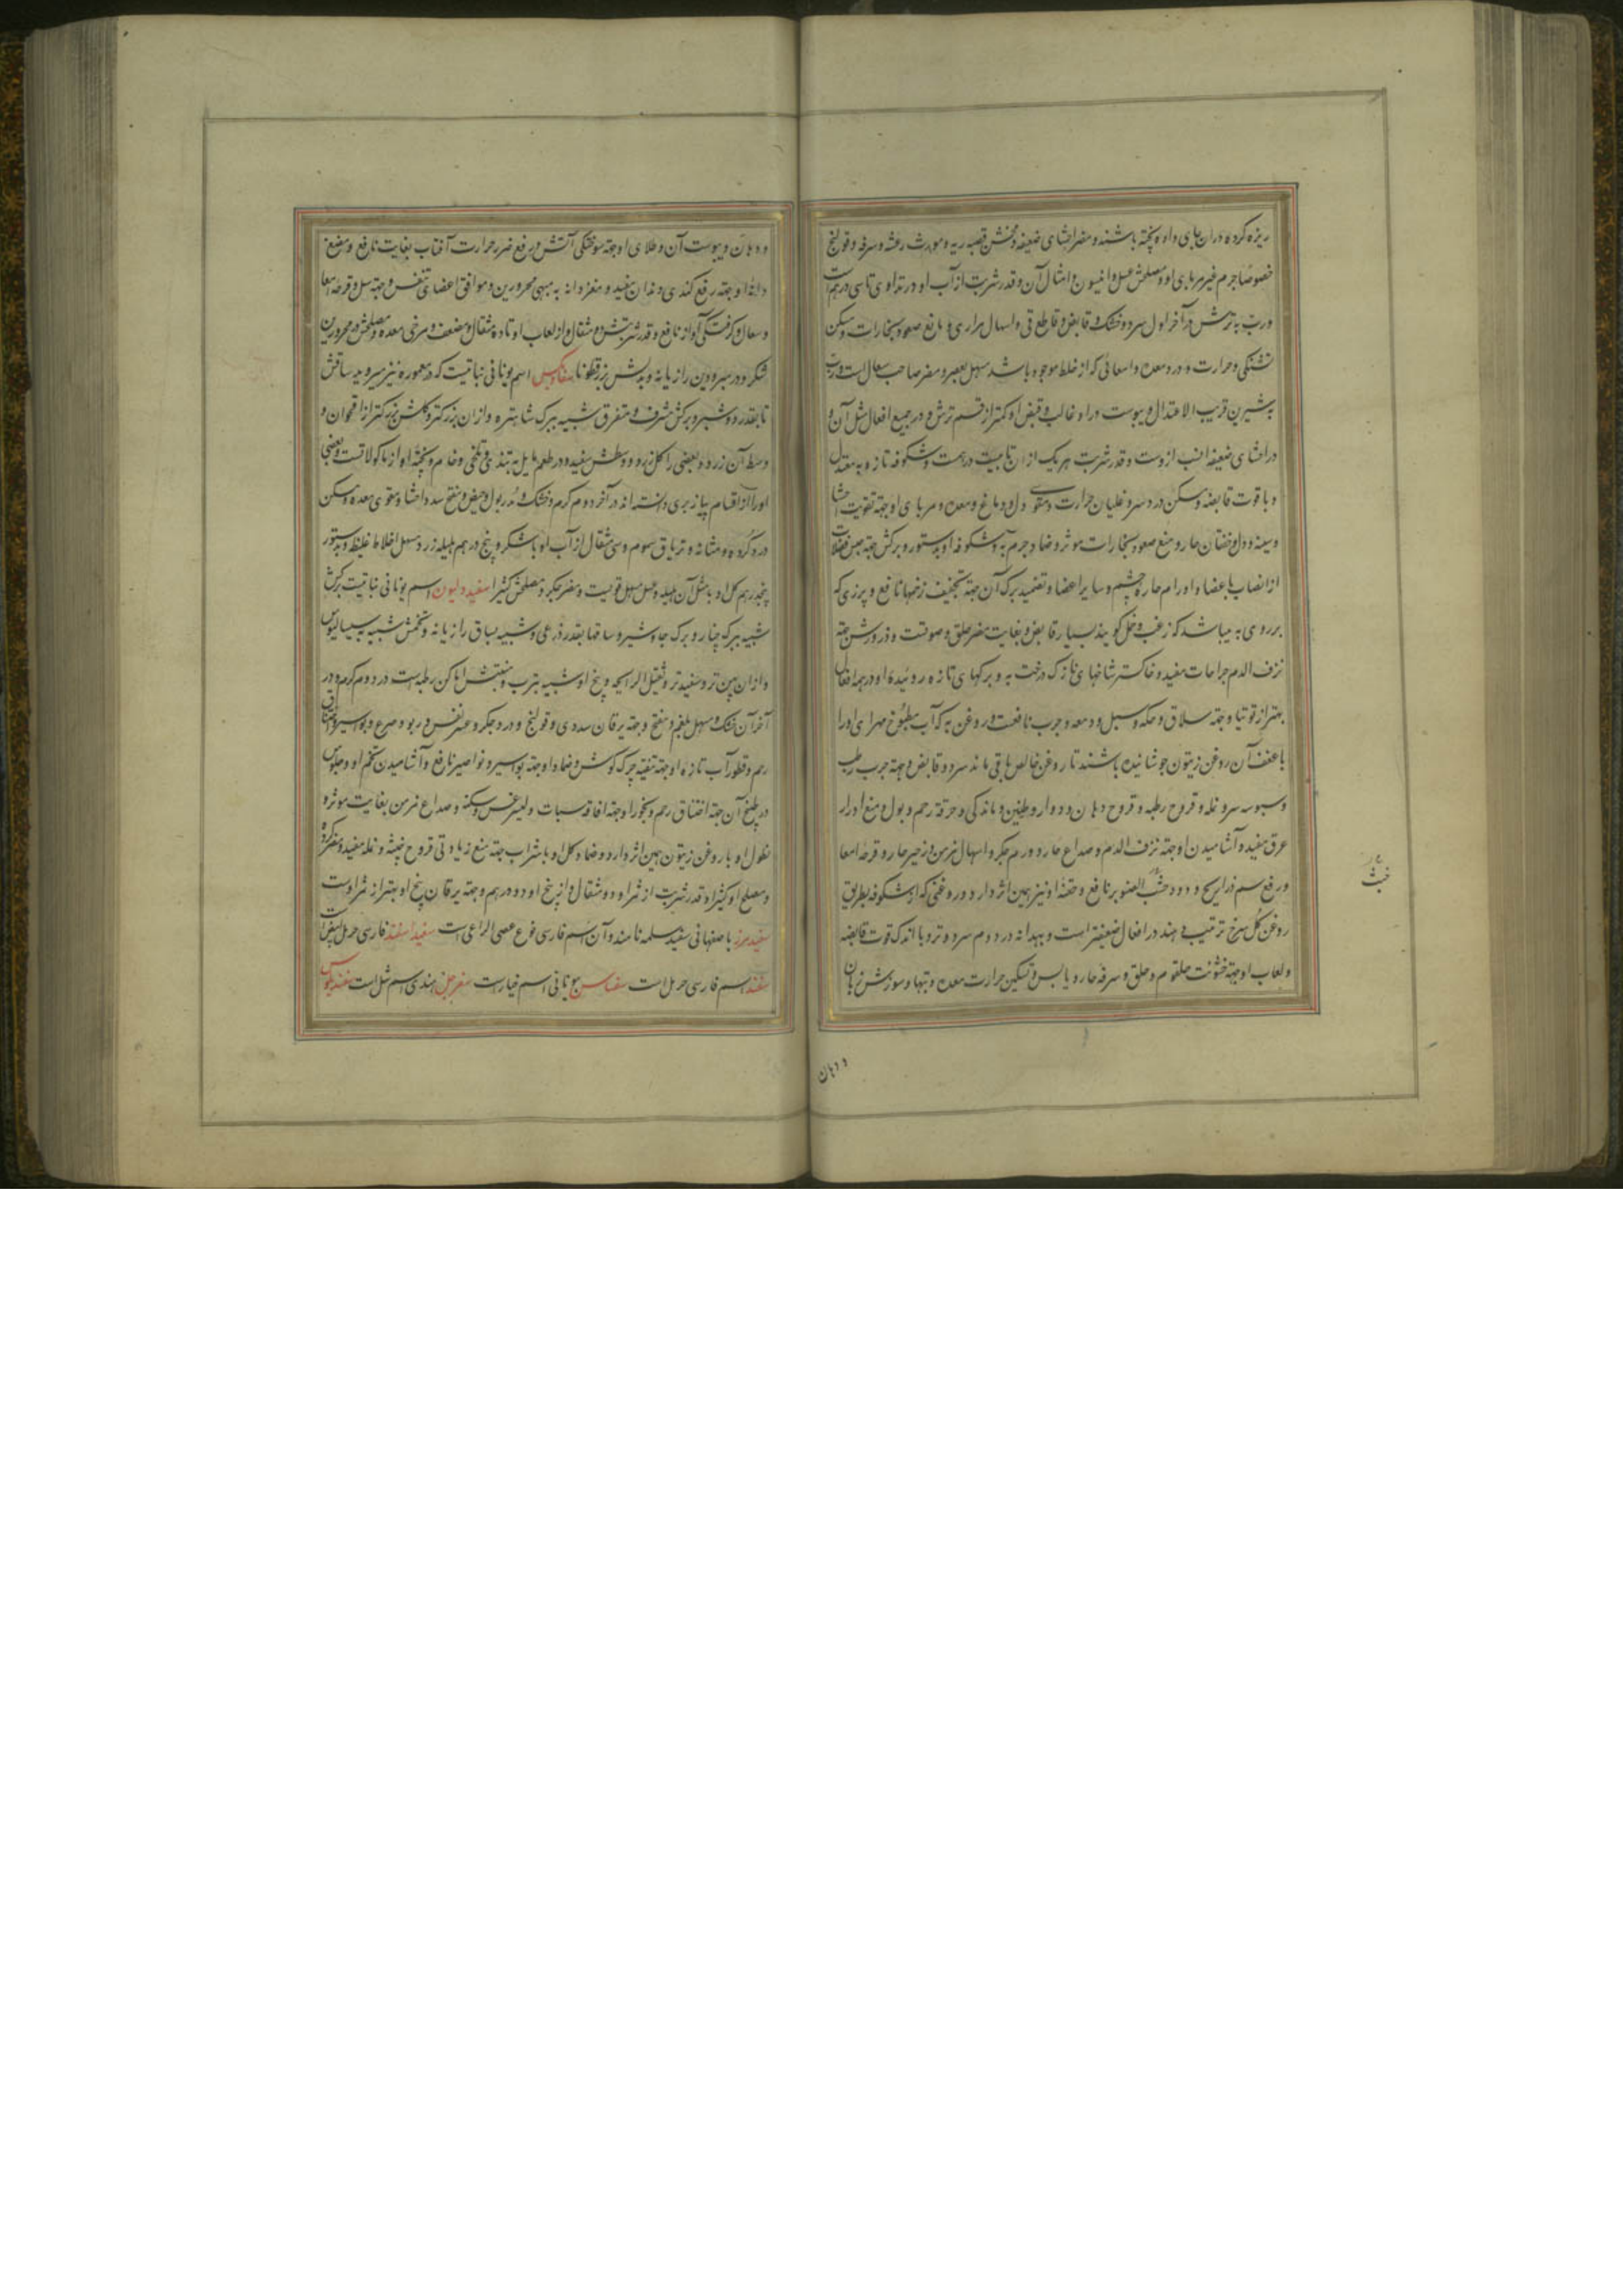 ریزه کرده دران جای داده پخته باشند و مضر احشای ضعیفه و مخشن قصبه ریه و مورث رعشه و سرفه و قولنج
خصوصا جرم غیر مربای او و مصلحش عسل و انیسون و امثال آن و قدر شربت از آب او در تداوی تا سی درهم است
و رب به ترش در آخر اول سرد و خشک و قابض و قاطع قی و اسهال مراری و مانع صعود بخارات و مسکن
تشنگی و حرارت و درد معده و امعائی که از خلط موجود باشد مسهل بعصر و مضر صاحب سعال است و رب
به شیرین قریب الاعتدال و یبوست درو غالب و قبض او کمتر از قسم ترش و در جمیع افعال مثل آن و
در احشای ضعیفه انسب ازوست و قدر شربت هر یک از آن تا بیست درهمست و شکوفه تازه به معتدل
و با قوت قابضه و مسکن درد سر و غلیان حرارت و مقوی دل و دماغ و معده و مربای او جهة تقویت احشا
و سینه و دل و خفقان حار و منع صعود بخارات موثر و ضماد جرم به و شکوفه او بدستور و برکش جهة حبس فضلات
از انصباب باعضا و اورام حاره چشم و سایر اعضا و تضمید برک آن جهة تجفیف زخمها نافع و پرزی که
بر روی به میباشد که زغب و خمل کویند بسیار قابض و بغایت مضر حلق و صوتست و ذرورش جهة
نزف الدم جراحات مفید و خاکستر شاخهای نازک درخت به و برکهای تازه روئیده او در همه افعال
بهتر از توتیا و جهة سلاق و حکه و سبل و دمعه و جرب نافعست و روغن به که آب مطبوخ مهرای او را
با ضعف آن روغن زیتون جوشانیده باشند تا روغن خالص باقی ماند سرد و قابض و جهة جرب رطب
و سبوسه سر و نمله و قروح رطبه و قروح دهان و دوار و طنین و ماندکی و حرقة رحم و بول و منع ادرار
عرق مفید و آشامیدن او جهة نزف الدم و صداع حار و ورم جکر و اسهال مزمن و زحیر حار و قرحه امعا
و رفع سم ذراریح و دود حب الصنوبر نافع و حقنه او نیز همین اثر دارد و روغنی که از شکوفه بطریق
روغن کل سرخ ترتیب دهند در افعال ضعیفتر است و بهدانه در دوم سرد و تر و با اندک قوت قابضه
و لعاب او جهة خشونت حلقوم و حلق و سرفه حار و یابس و تسکین حرارت معده و تبها و سوزش زبان
و دهان
و دهان و یبوست آن و طلای او جهة سوختکی آتش و رفع ضرر حرارت آفتاب بغایت نافع و مضغ
دانه او جهة رفع کندی دندان مفید و مغز دانه به مبهی محرورین و موافق اعضای تنفس و جهة سل و قرحه امعا
و سعال و کرفتکی آواز نافع و قدر شربتش دو مثقال و از لعاب او تا ده مثقال و مضعف و مرخی معده و مصلحش در محرورین
شکر و در مبرودین رازیانه و بدلش بزرقطونا اسم یونانی نباتیست که در معموره نیز میروید ساقش
تا بقدر دو شبر و برکش مشرف و متفرق شبیه ببرک شاهتره و از ان بزرکتر و کلش بزرکتر از اقحوان و
وسط آن زرد و بعضی را کل زرد و وسطش سفید و در طعم مایل به تندی و تلخی و خام و پخته او از ماکولاتست و بعضی
او را از اقسام پیاز بری دانسته اند در آخر دوم کرم و خشک و مدر بول و حیض و مفتح سدد احشا و مقوی معده و مسکن
درد کرده و مثانه و تریاق سموم و سی مثقال از آب او با شکر و پنج درهم هلیله زرد مسهل اخلاط غلیظ و بدستور
پنجدرهم کل او با مثل آن هلیله و عسل مسهل قویست و مضر جکر و مصلحش کثیرا سفیددلیون اسم یونانی نباتیست برکش
شبیه ببرک چنار و برک جاوشیر و ساقها بقدر ذرعی و شبیه بساق رازیانه و تخمش شبیه بسیسالیوس
و از ان پهن تر و سفیدتر و ثقیل الرایحه و بیخ او شبیه بترب و منبتش اماکن رطبه است در دوم کرم و در
آخر آن خشک و مسهل بلغم و مفتح و جهة یرقان سددی و قولنج و درد جکر و عسر نفس و ربو و صرع و بواسیر و اختناق
رحم و قطور آب تازه او جهة تنقیه چرک کوش و ضماد او جهة بواسیر و نواصیر نافع و آشامیدن تخم او و جلوس
در طبیخ آن جهة اختناق رحم و بخور او جهة افاقه سبات و لیثرغس و سکته و صداع مزمن بغایت موثر و
نطول او با روغن زیتون همین اثر دارد و ضماد کل او با شراب جهة منع زیادتی قروح خبیثه و نمله مفید و مضر کرده
و مصلح او کثیرا و قدر شربت از ثمر او دو مثقال و از بیخ او دو درهم و جهة یرقان بیخ او بهتر از ثمر اوست
سفیدمرز باصفهانی سفید سلمه نامند و آن اسم فارسی نوع عصی الراعی است سفید اسفند فارسی حرمل ابیض است
سفند اسم فارسی حرمل است سفناس یونانی اسم خیار است سفرجل هندی اسم شل است